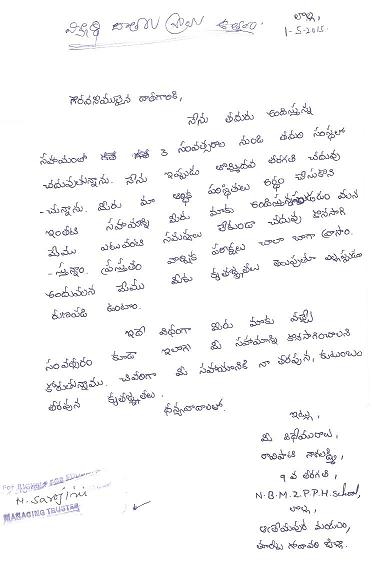 లాల్ల,
1-5-2015.
గౌరవనీయులైన దాతగారికి,
నేను తమరు అందిస్తున్న
సహాయంతో గత 3 సంవత్సరాల నుండి తమరి సంస్థలో
చదువుతున్నాను. నేను ఇప్పుడు తొమ్మిదవ తరగతి చదువు
-చున్నాను. మీరు మా ఆర్థిక పరిస్థితులు అర్థం చేసుకొని
ఇంతటి సహాయాన్ని మీరు మాకు అందిస్తున్నందువలన
మేము ఎటువంటి సమస్యలు లేకుండా చదువు కొనసాగి
-స్తున్నాం. ప్రస్తుతం వార్షిక పరీక్షలు చాలా బాగా వ్రాసాం.
అందువలన మేము మీకు కృతజ్ఞతలు తెలుపుతూ ఎల్లప్పుడు
రుణపడి ఉంటాం.
ఇదే విధంగా మీరు మాకు వచ్చే
సంవత్సరం కూడా ఇలాగే మీ సహాయాన్ని కొనసాగించాలని
కోరుతున్నాము. చివరిగా మీ సహాయానికి నా తరపున, కుటుంబం
తరపున కృతజ్ఞతలు.
ధన్యవాదాలతో.
ఇట్లు,
మీ విధేయురాలు,
నాగలక్ష్మి,
9 వ తరగతి,
N.B.M.Z.P.P.H.School,
లాల్ల,
ఆత్రేయపురం మండలం,
తూర్పు గోదావరి జిల్లా.
N. Sarojini
MANAGING TRUSTEE